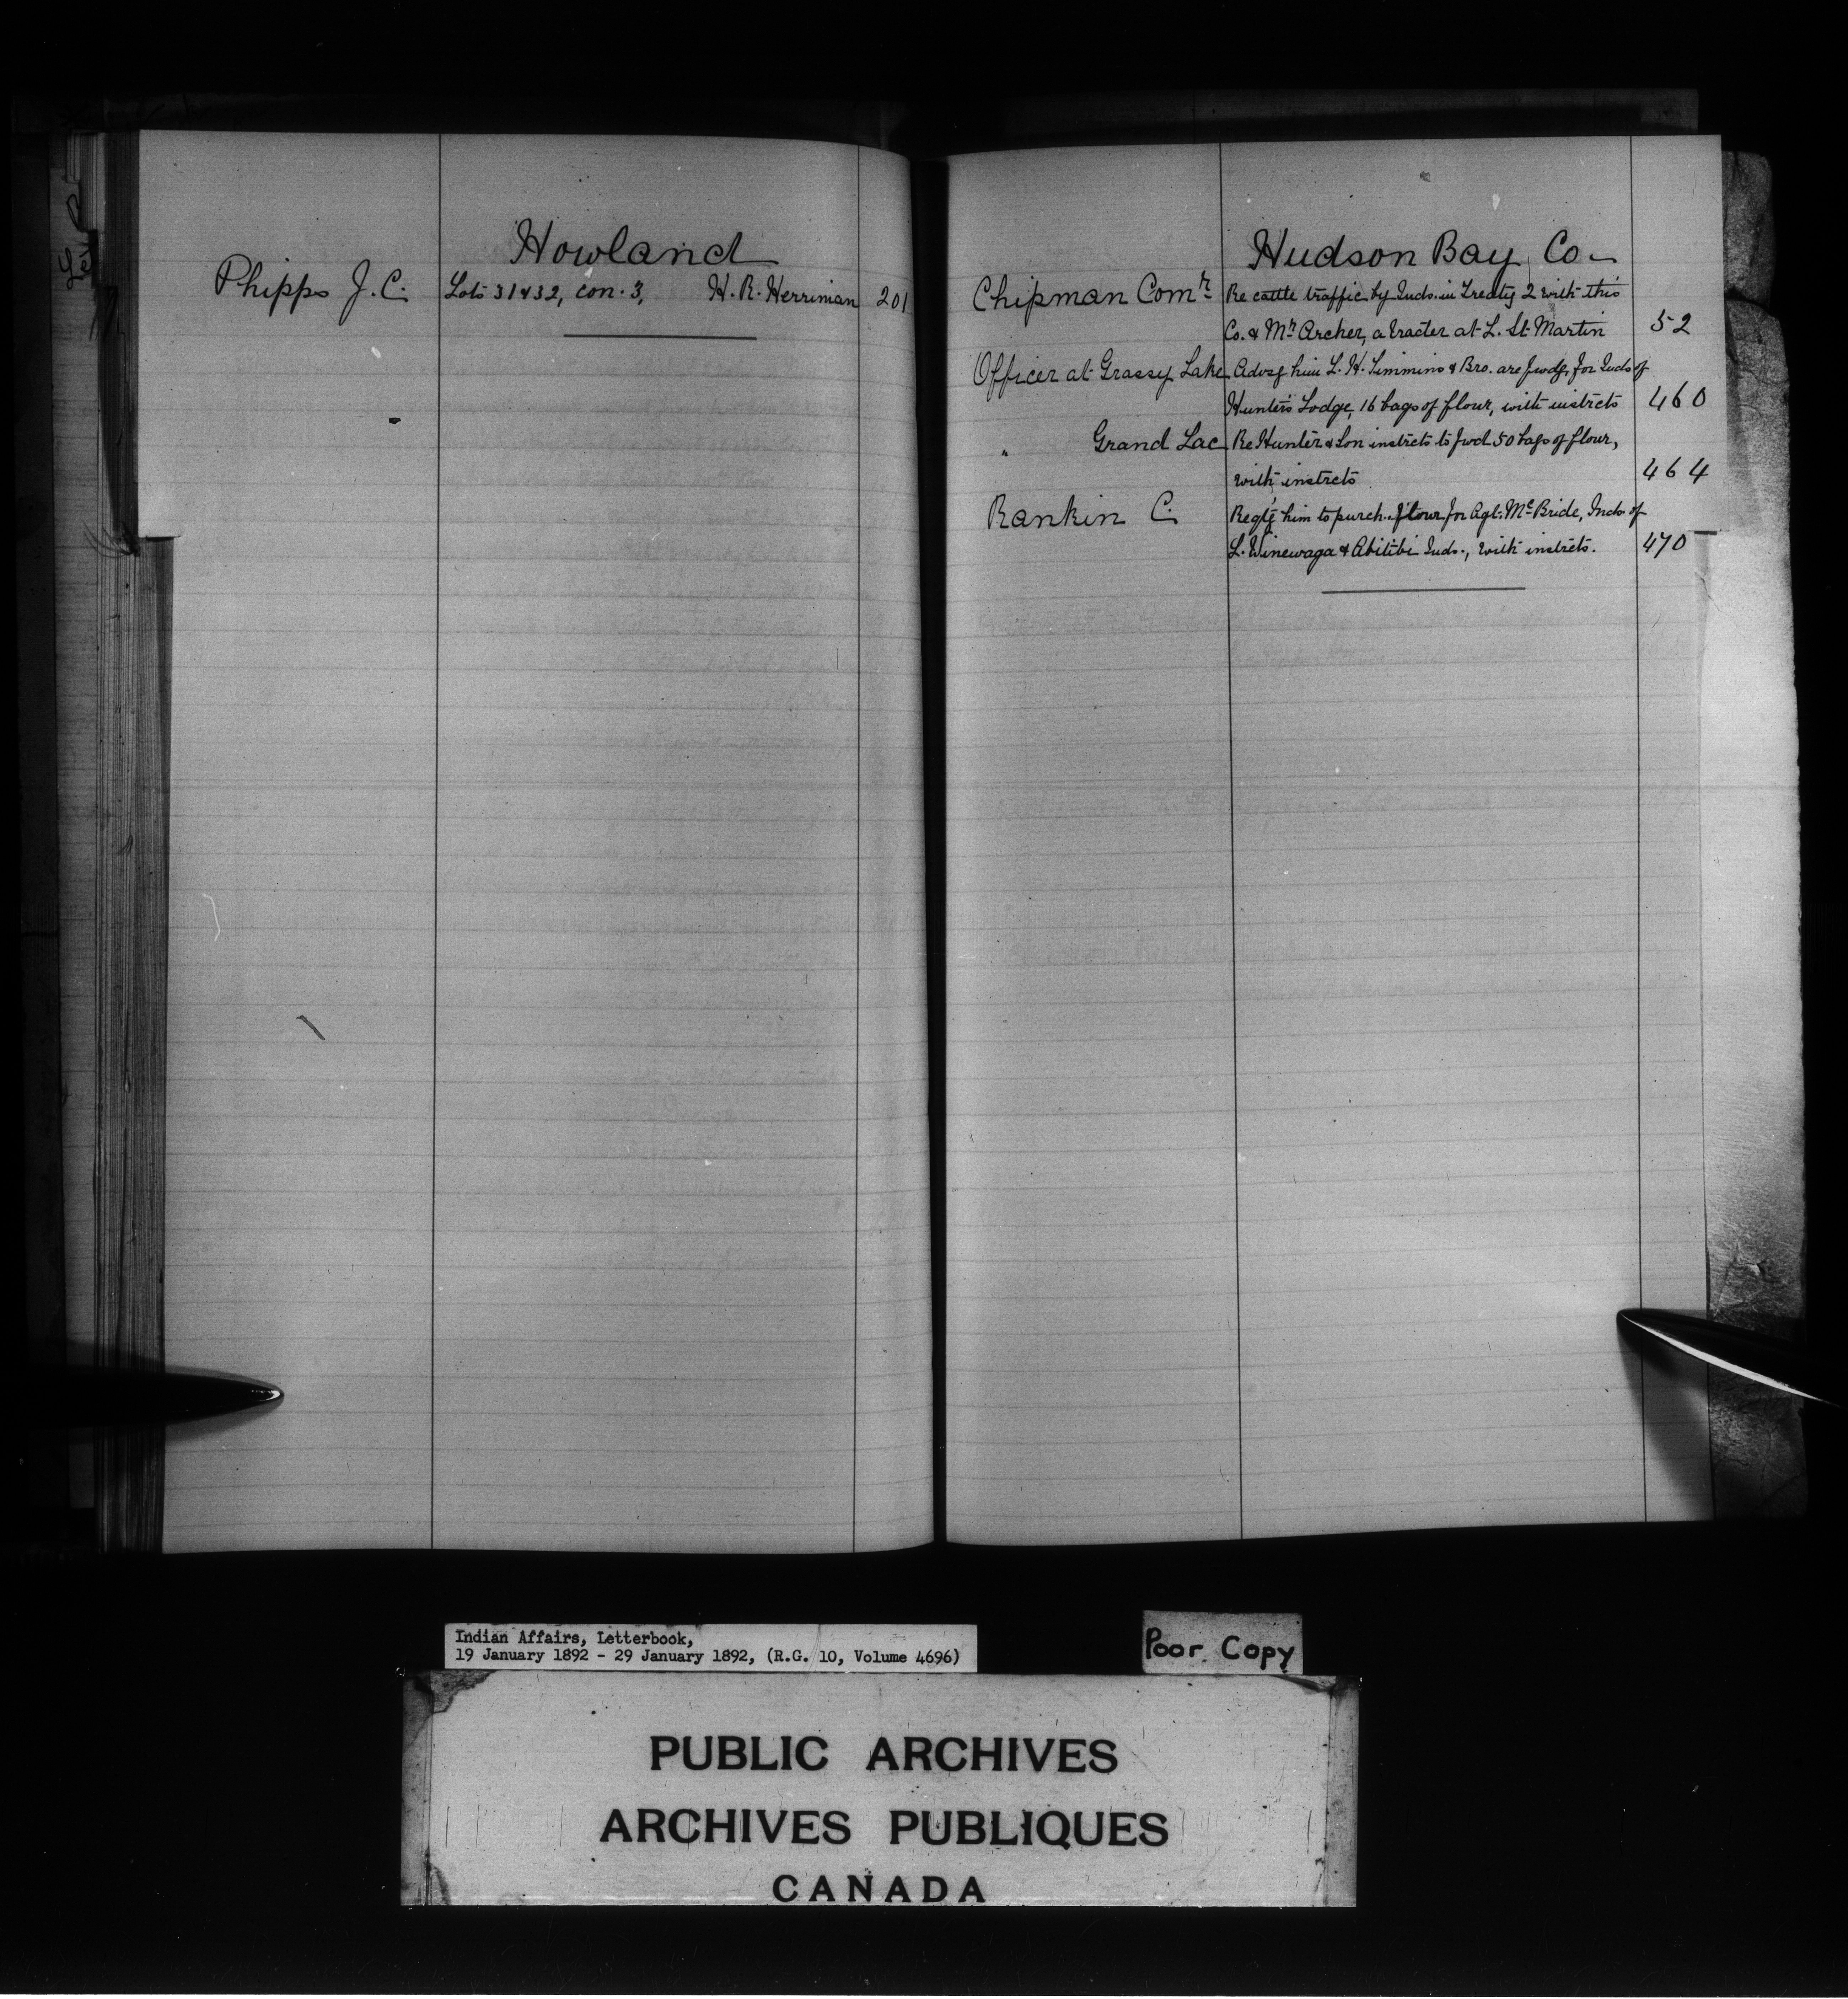 Howland
Phipps J. C. Lots 31 & 32, con. 3, H. R. Herriman 201
Hudson Bay Co.
Chipman Comr. Re cattle traffic by Inds. in Treaty 2 with this
Co. & Mr. Archer, a trader at L. St. Martin 52
Officer at Grassy Lake Advsg him L. H. Timmins & Bro. are fwdg. for Inds of
Hunter's Lodge, 16 bags of flour, with instrcts 460
" Grand Lac Re Hunter & Son instrcts to fwd 50 bags of flour,
with instrcts 464
Rankin C. Reqtg him to purch. flour for Agt. McBride, Inds of
L. Winewaga & Abitibi Inds., with instrcts. 470
Indian Affairs, Letterbook,
19 January 1892 - 29 January 1892, (R.G. 10, Volume 4696)
Poor Copy
PUBLIC ARCHIVES
ARCHIVES PUBLIQUES
CANADA